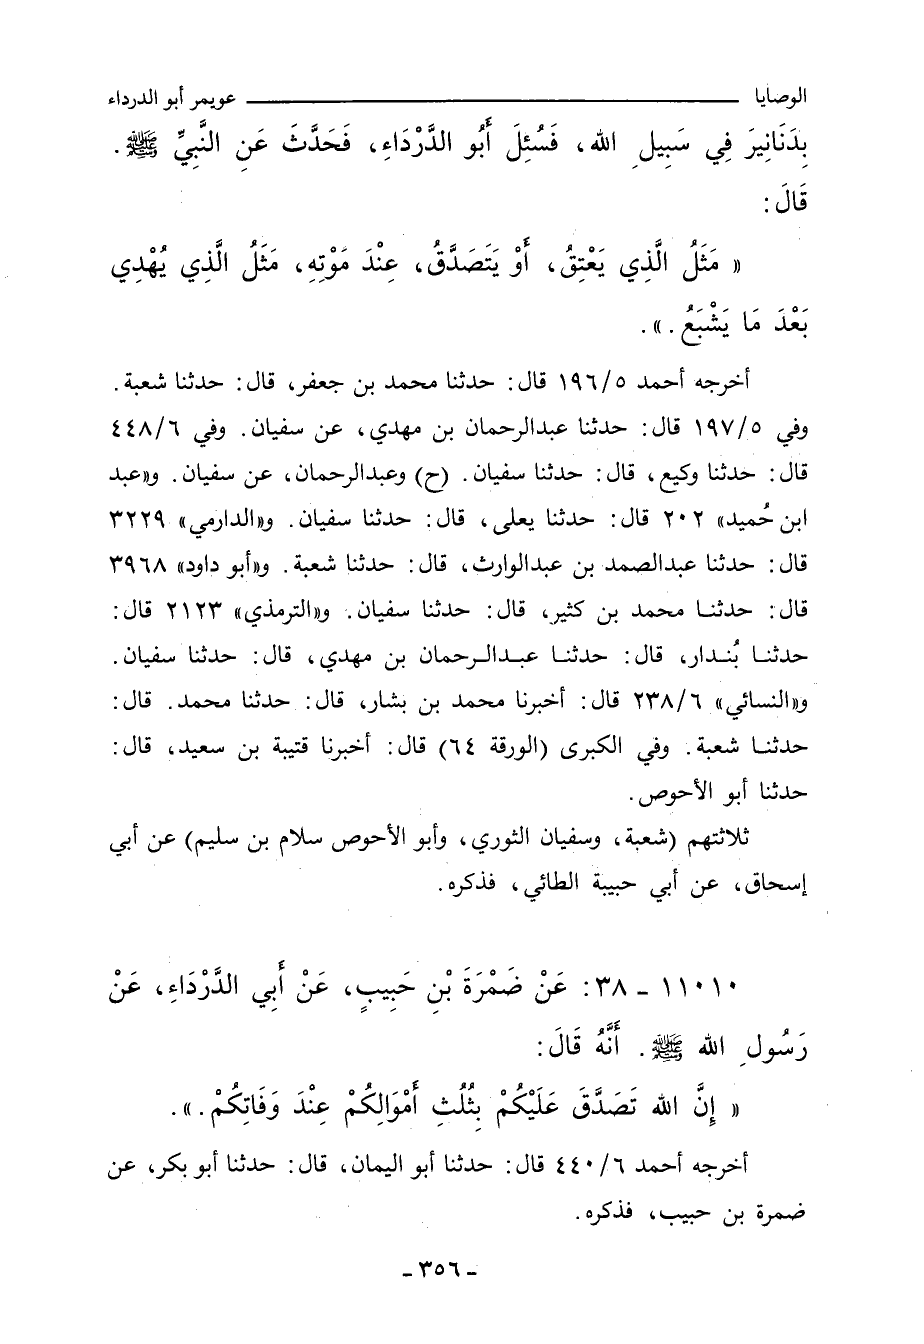 الوصايا ــــــــــــــ عويمر أبو الدرداء
بِدَنَانِيرَ فِي سَبِيلِ الله، فَسُئِلَ أَبُو الدَّرْدَاءِ، فَحَدَّثَ عَنِ النَّبِيِّ ﷺ .
قَالَ :
« مَثَلُ الَّذِي يَعْتِقُ، أَوْ يَتَصَدَّقُ، عِنْدَ مَوْتِهِ، مَثَلُ الَّذِي يُهْدِي
بَعْدَ مَا يَشْبَعُ . ».
أخرجه أحمد ١٩٦/٥ قال: حدثنا محمد بن جعفر، قال: حدثنا شعبة .
وفي ١٩٧/٥ قال: حدثنا عبدالرحمان بن مهدي، عن سفيان. وفي ٤٤٨/٦
قال: حدثنا وكيع، قال: حدثنا سفيان. (ح) وعبدالرحمان، عن سفيان. و«عبد
ابن حُميد» ٢٠٢ قال: حدثنا يعلى، قال: حدثنا سفيان. و«الدارمي» ٣٢٢٩
قال: حدثنا عبدالصمد بن عبدالوارث، قال: حدثنا شعبة. و«أبو داود» ٣٩٦٨
قال: حدثنا محمد بن كثير، قال: حدثنا سفيان. و«الترمذي» ٢١٢٣ قال:
حدثنا بُندار، قال: حدثنا عبدالرحمان بن مهدي، قال: حدثنا سفيان.
و«النسائي» ٢٣٨/٦ قال: أخبرنا محمد بن بشار، قال: حدثنا محمد. قال:
حدثنا شعبة. وفي الكبرى (الورقة ٦٤) قال: أخبرنا قتيبة بن سعيد، قال:
حدثنا أبو الأحوص.
ثلاثتهم (شعبة، وسفيان الثوري، وأبو الأحوص سلام بن سليم) عن أبي
إسحاق، عن أبي حبيبة الطائي، فذكره.
١١٠١٠ ـ ٣٨: عَنْ ضَمْرَةَ بْنِ حَبِيبٍ، عَنْ أَبِي الدَّرْدَاءِ، عَنْ
رَسُولِ الله ﷺ . أَنَّهُ قَالَ:
« إِنَّ الله تَصَدَّقَ عَلَيْكُمْ بِثُلُثِ أَمْوَالِكُمْ عِنْدَ وَفَاتِكُمْ . ».
أخرجه أحمد ٤٤٠/٦ قال: حدثنا أبو اليمان، قال: حدثنا أبو بكر، عن
ضمرة بن حبيب، فذكره.
ـ ٣٥٦ ـ